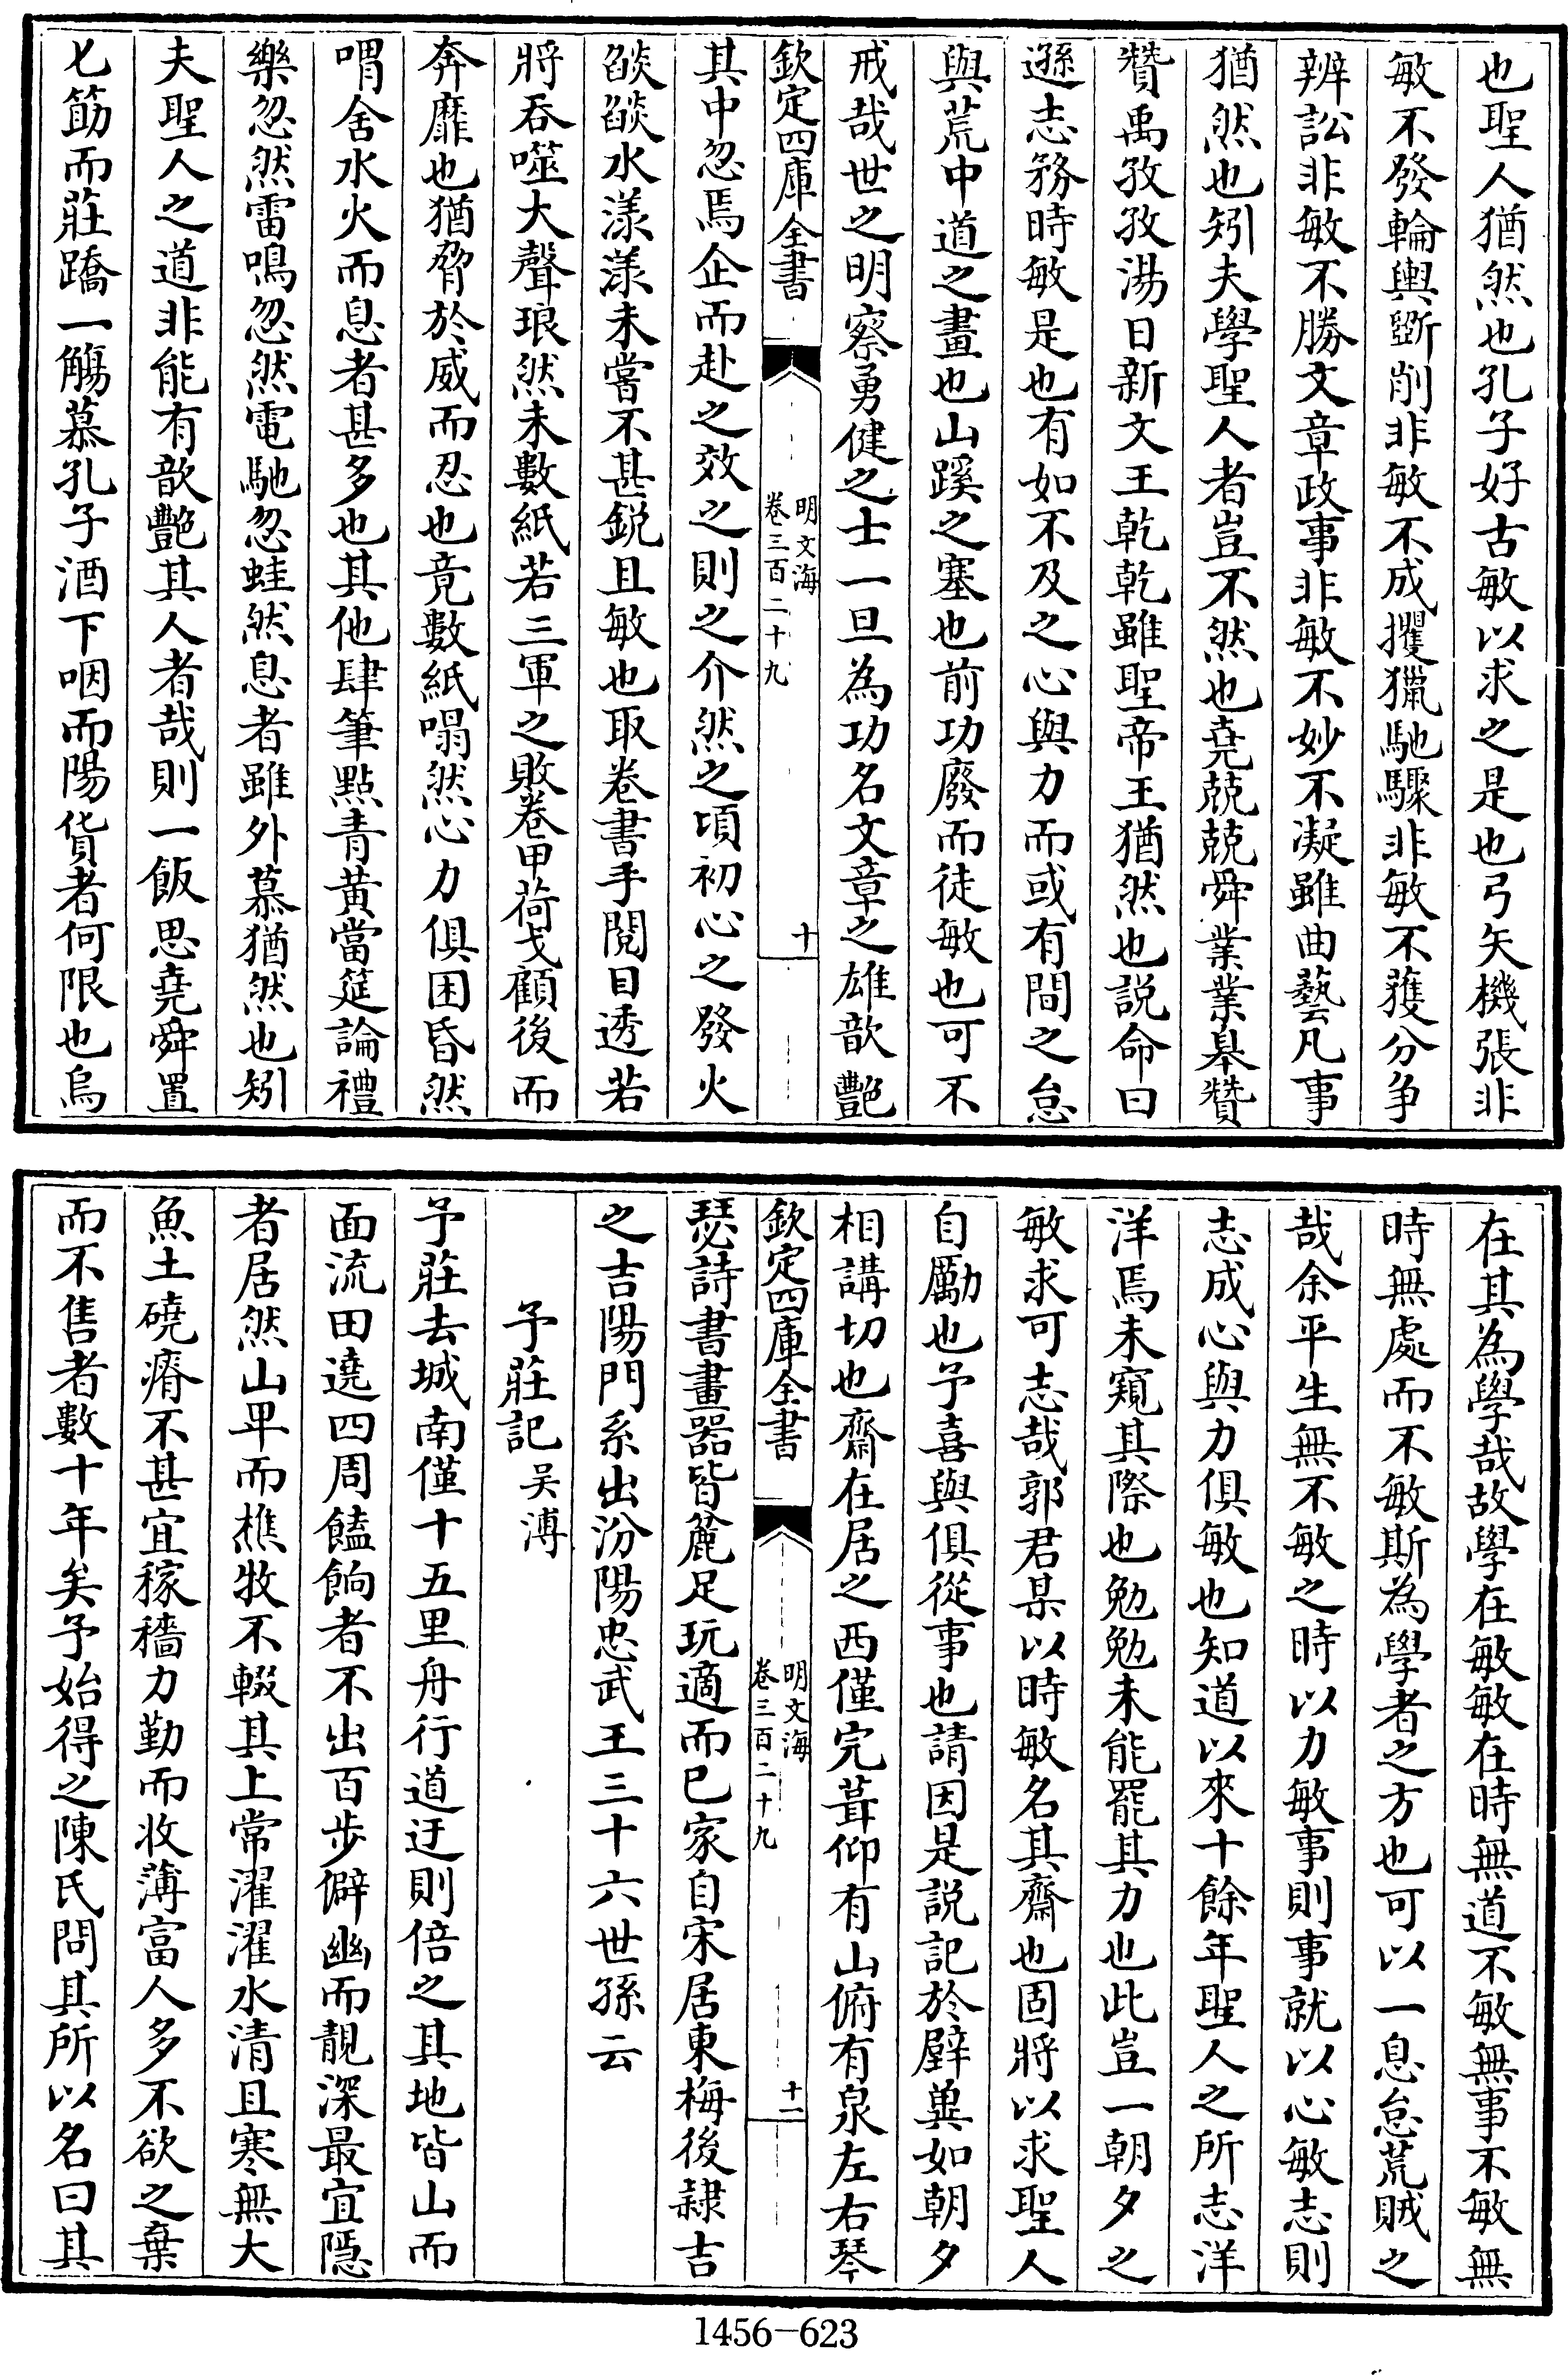 也聖人猶然也孔子好古敏以求之是也弓矢機張非
敏不發輪輿斲削非敏不成攫獵馳驟非敏不獲分争
辨訟非敏不勝文章政事非敏不妙不凝雖曲藝凡事
猶然也矧夫學聖人者豈不然也堯兢兢舜業業臯贊
贊禹孜孜湯日新文王乾乾雖聖帝王猶然也説命曰
遜志務時敏是也有如不及之心與力而或有間之怠
與荒中道之畫也山蹊之塞也前功廢而徒敏也可不
戒哉世之明察勇健之士一旦為功名文章之雄歆艷
欽定四庫全書
明文海
卷三百二十九
十
其中忽焉企而赴之效之則之介然之頃初心之發火
燄燄水漾漾未嘗不甚鋭且敏也取卷書手閱目透若
將吞噬大聲琅然未數紙若三軍之敗卷甲荷戈顧後而
奔靡也猶脅於威而忍也竟數紙嗒然心力俱困昏然
喟舍水火而息者甚多也其他肆筆點青黄當筵論禮
樂忽然雷鳴忽然電馳忽蛙然息者雖外慕猶然也矧
夫聖人之道非能有歆艷其人者哉則一飯思堯舜置
匕筯而莊蹻一觴慕孔子酒下咽而陽貨者何限也烏
在其為學哉故學在敏敏在時無道不敏無事不敏無
時無處而不敏斯為學者之方也可以一息怠荒賊之
哉余平生無不敏之時以力敏事則事就以心敏志則
志成心與力俱敏也知道以來十餘年聖人之所志洋
洋焉未窺其際也勉勉未能罷其力也此豈一朝夕之
敏求可志哉郭君某以時敏名其齋也固將以求聖人
自勵也予喜與俱從事也請因是説記於壁兾如朝夕
相講切也齋在居之西僅完葺仰有山俯有泉左右琴
欽定四庫全書
明文海
卷三百二十九
十一
瑟詩書畫器皆麄足玩適而已家自宋居東梅後隷吉
之吉陽門系出汾陽忠武王三十六世孫云
予莊記 吴溥
予莊去城南僅十五里舟行道迂則倍之其地皆山而
面流田遶四周饁餉者不出百步僻幽而靚深最宜隱
者居然山平而樵牧不輟其上常濯濯水清且寒無大
魚土磽瘠不甚宜稼穡力勤而收薄富人多不欲之棄
而不售者數十年矣予始得之陳氏問其所以名曰其
1456-623